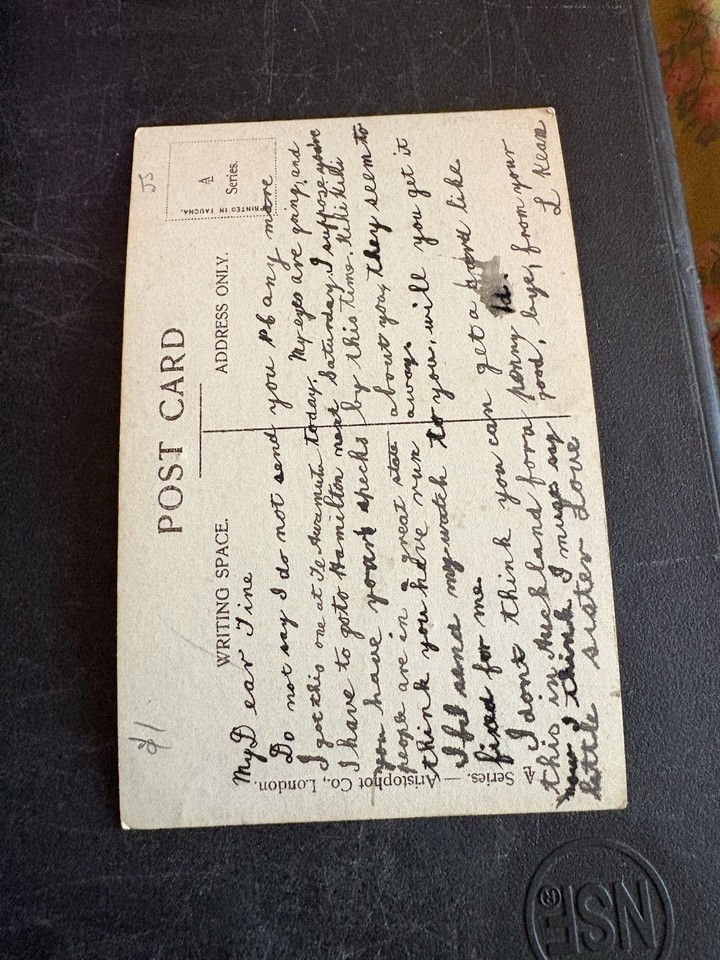 POST CARD
WRITING SPACE.
ADDRESS ONLY.
A
Series.
PRINTED IN TAUCHA.
JS
My Dear Tine
Do not say I do not send you P6 any more
I got this one at Te Awamutu today. My eyes are going, and
I have to go to Hamilton next Saturday. I suppose you've
you have your specks by this time. Kiki Kiki
people are in a great state about you, they seem to
think you have run away will you get it
If I send my watch to you, will
fixed for me.
I dont think you can get a card like
this in Auckland for a penny 1d.
now I think I must say good, bye, from your
little sister Love L Kean
A Series. — Aristophot Co., London.
NSH